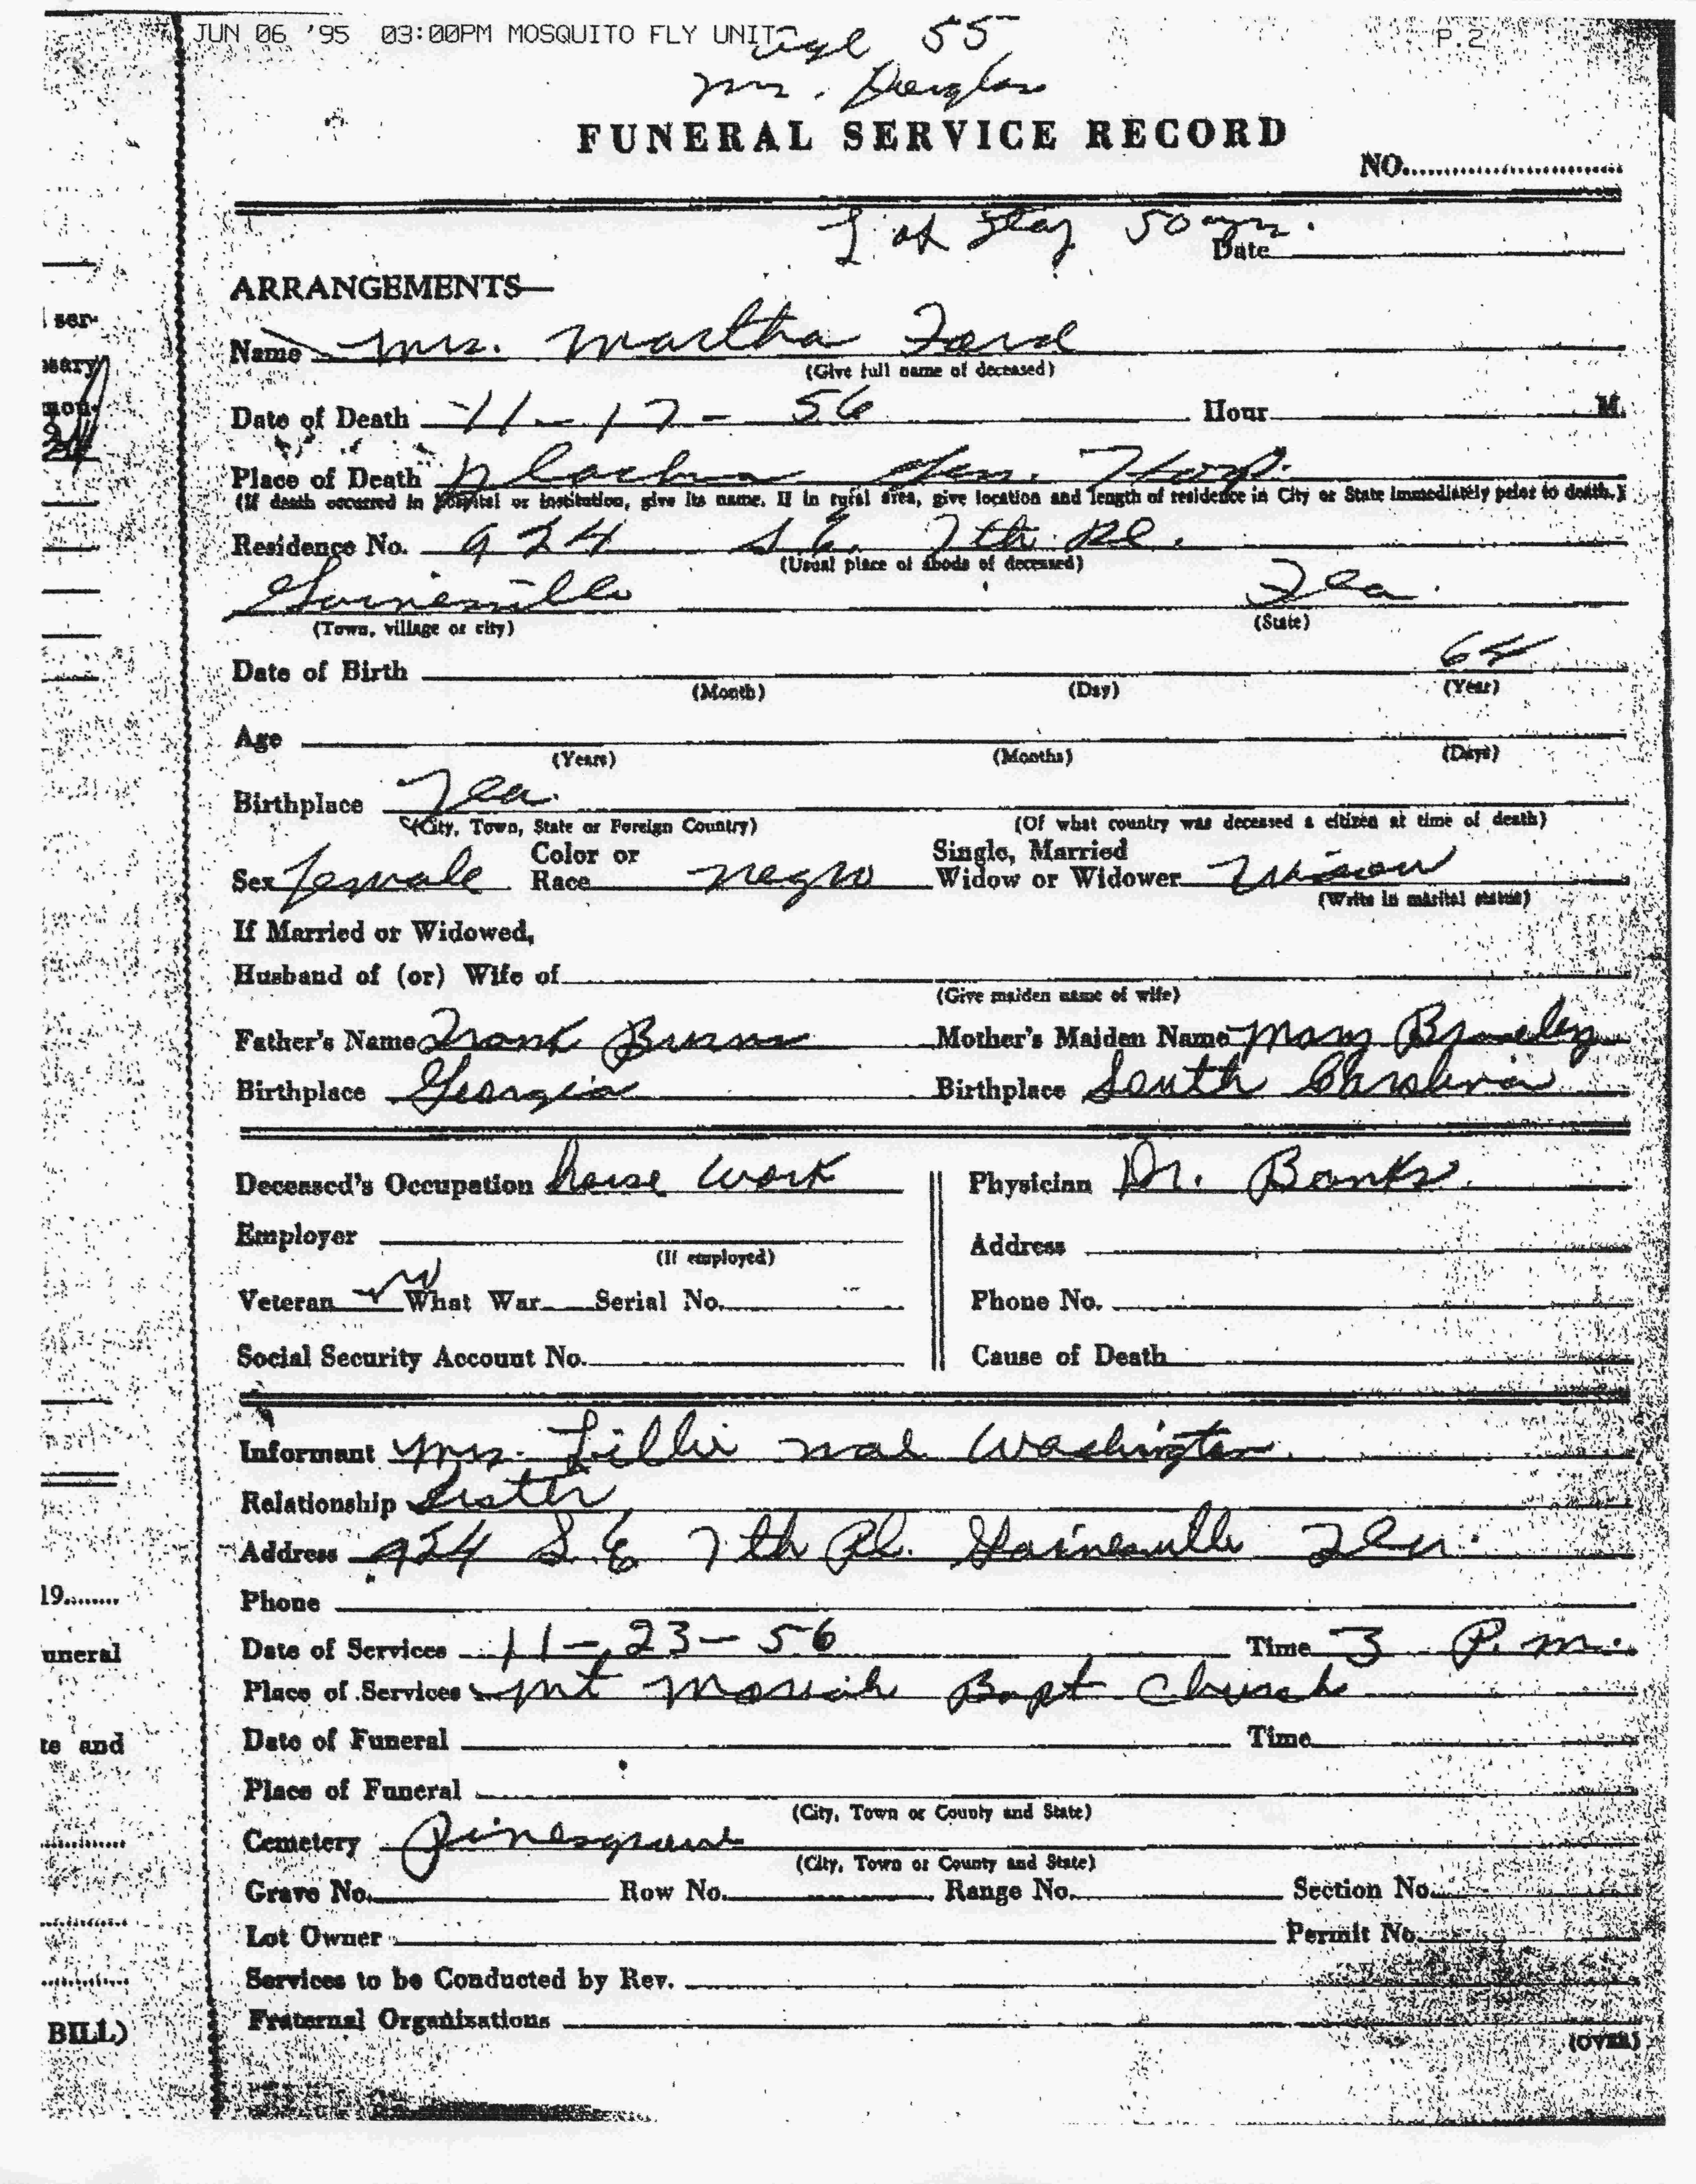 JUN 06 '95 03:00PM MOSQUITO FLY UNIT P.2
age 55
Mr. Douglas
FUNERAL SERVICE RECORD
NO.
L. of Stay 50 yrs.
Date
ARRANGEMENTS—
Name Mrs. Martha Ford
(Give full name of deceased)
Date of Death 11-17-56 Hour M.
Place of Death Alachua Gen. Hosp.
(If death occurred in hospital or institution, give its name. If in rural area, give location and length of residence in City or State immediately prior to death.)
Residence No. 924 S.E. 7th Pl.
(Usual place of abode of deceased)
Gainesville Fla.
(Town, village or city) (State)
Date of Birth
(Month) (Day) (Year)
Age
(Years) (Months) (Days)
Birthplace Fla.
(City, Town, State or Foreign Country) (Of what country was deceased a citizen at time of death)
Sex female Color or Race negro Single, Married Widow or Widower Widow
(Write in marital status)
If Married or Widowed,
Husband of (or) Wife of
(Give maiden name of wife)
Father's Name Frank Burns Mother's Maiden Name Mary
Birthplace Georgia Birthplace South Carolina
Deceased's Occupation house work Physician Dr. Banks
Employer Address
(If employed)
Veteran What War Serial No. Phone No.
Social Security Account No. Cause of Death
Informant Mrs. Lillie Mae Washington
Relationship Sister
Address 924 S.E 7th Pl. Gainesville Fla.
Phone
Date of Services 11-23-56 Time 3 P.m.
Place of Services Mt Moriah Bapt Church
Date of Funeral Time
Place of Funeral
(City, Town or County and State)
Cemetery Pinesgrove
(City, Town or County and State)
Grave No. Row No. Range No. Section No.
Lot Owner Permit No.
Services to be Conducted by Rev.
Fraternal Organizations
(OVER)
ser-
19
uneral
te and
BILL)